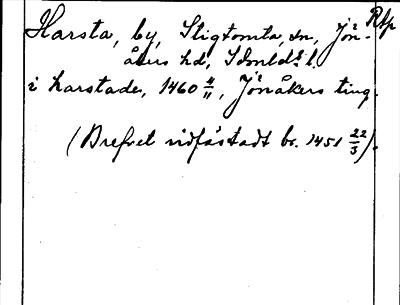 Rtp
Harsta, by, Stigtomta sn, Jön-
åkers hd, Södmlds l.
i harstade, 1460 4/11, Jönåkers ting.
(Brefvet vidfästadt br. 1451 22/3).